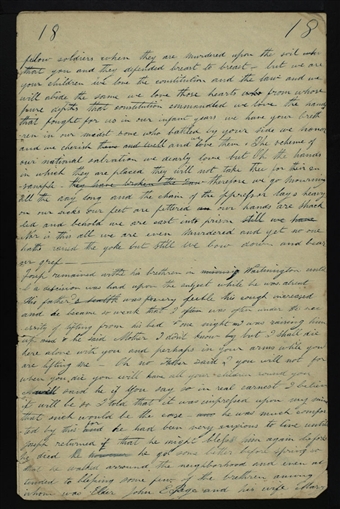 18 18
fellow soldiers when they are murdered upon the soil
that you and they defended breast to breast - but we are
your children we love the constitution and the law and we
will abide the same we love those hearts who from whose
pure depths that constitution emmanated we love the hands
that fought for us in our infant years we have your breth
ren in our midst some who battled by your side we honor
and we cherish them and will and love them + The scheme of
our national salvation we dearly love but Oh the hands
in which they are placed they will not take
they have broken the law therefore we go mourning
All the day long and the chain of the oppressor lays heavy
on our necks our feet are fettered our hands are shack
led and behold we are cast into prison still we have
this is this all we are even murdered and yet no one
hath eased the yoke but still we bow down and bear
our grief
Joseph remained with his brethren in Washington until
a decision was had upon the subject while he was absent
His father's health was very feeble his cough increased
and he became so weak that I often was often under the ne
cessity of lifting from his bed one night as I was raising him
up he said Mother I don't know but I shall die
here alone with you and perhaps in your arms while you
are lifting me - Oh no Father said I you will not for
when you die you will have all your children round you
well said he if you say so in real earnest I believe
it will be so I told that it was impressed upon my mind
that such would be the case he was much comfor
ted by this for he had been very anxious to live until
Joseph returned that he might bless him again before
he died he got some better before spring so
that he walked arround the neighborhood and even at
tended to blessing some few of the brethren among
whom was Elder John E. Page and his wife Mary